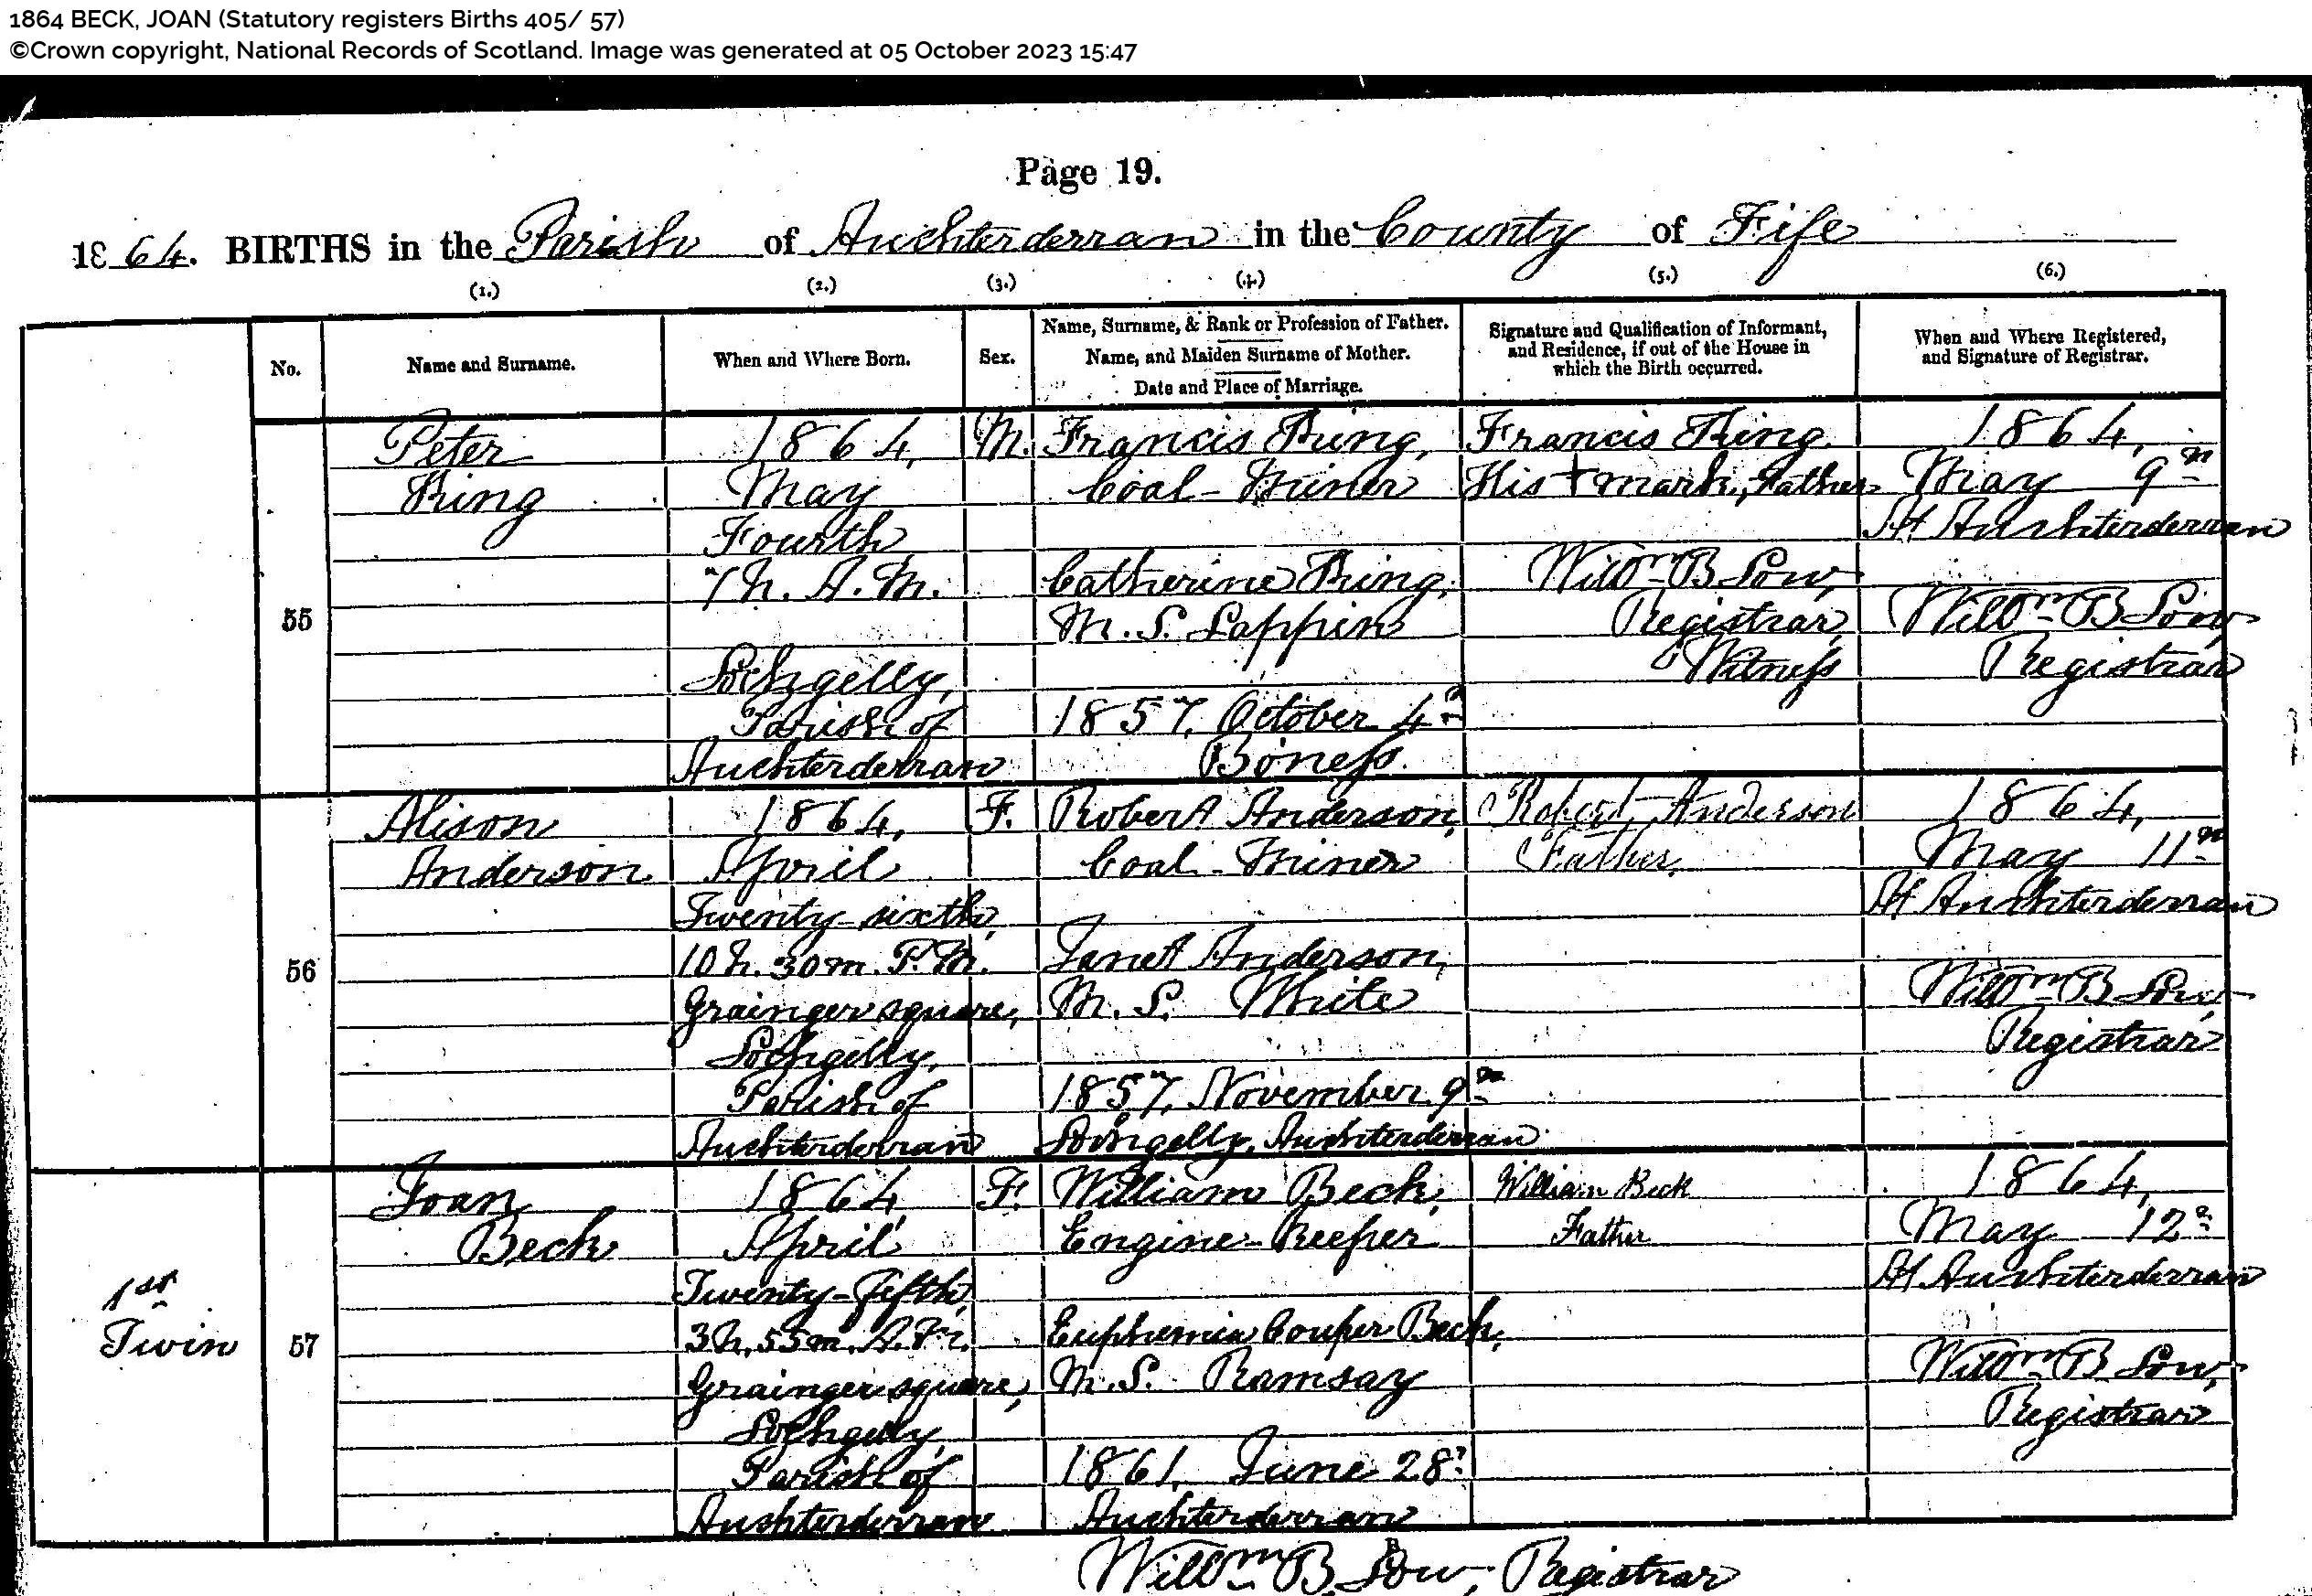 1864 BECK, JOAN (Statutory registers Births 405/ 57)
©Crown copyright, National Records of Scotland. Image was generated at 05 October 2023 15:47
Page 19.
1864. BIRTHS in the Parish of Auchterderran in the County of Fife
(1.) (2.) (3.) (4.) (5.) (6.)
No.
Name and Surname.
When and Where Born.
Sex.
Name, Surname, & Rank or Profession of Father.
Name, and Maiden Surname of Mother.
Date and Place of Marriage.
Signature and Qualification of Informant,
and Residence, if out of the House in
which the Birth occurred.
When and Where Registered,
and Signature of Registrar.
55
Peter
King
1864,
May
Fourth
7h. A.M.
Lochgelly,
Parish of
Auchterderran
M.
Francis King,
Coal-Miner
Catherine King,
M.S. Lappin
1857, October 4th
Boness.
Francis King
His + mark, Father
Willm B Low,
Registrar,
Witness
1864,
May 9th
At Auchterderran
Willm B Low,
Registrar
56
Alison
Anderson
1864,
April
Twenty-sixth,
10h. 30m. P.M.
Grainger square,
Lochgelly,
Parish of
Auchterderran
F.
Robert Anderson,
Coal-Miner
Janet Anderson,
M.S. White
1857, November 9th
Lochgelly, Auchterderran
Robert Anderson
Father
1864,
May 11th
At Auchterderran
Willm B Low,
Registrar
1st
Twin
57
Joan
Beck
1864
April
Twenty-fifth,
3h. 55m. A.M.
Grainger square,
Lochgelly,
Parish of
Auchterderran
F.
William Beck,
Engine-Keeper
Euphemia Couper Beck,
M.S. Ramsay
1861, June 28th
Auchterderran
William Beck
Father
1864,
May 12th
At Auchterderran
Willm B Low,
Registrar
Willm B. Low, Registrar